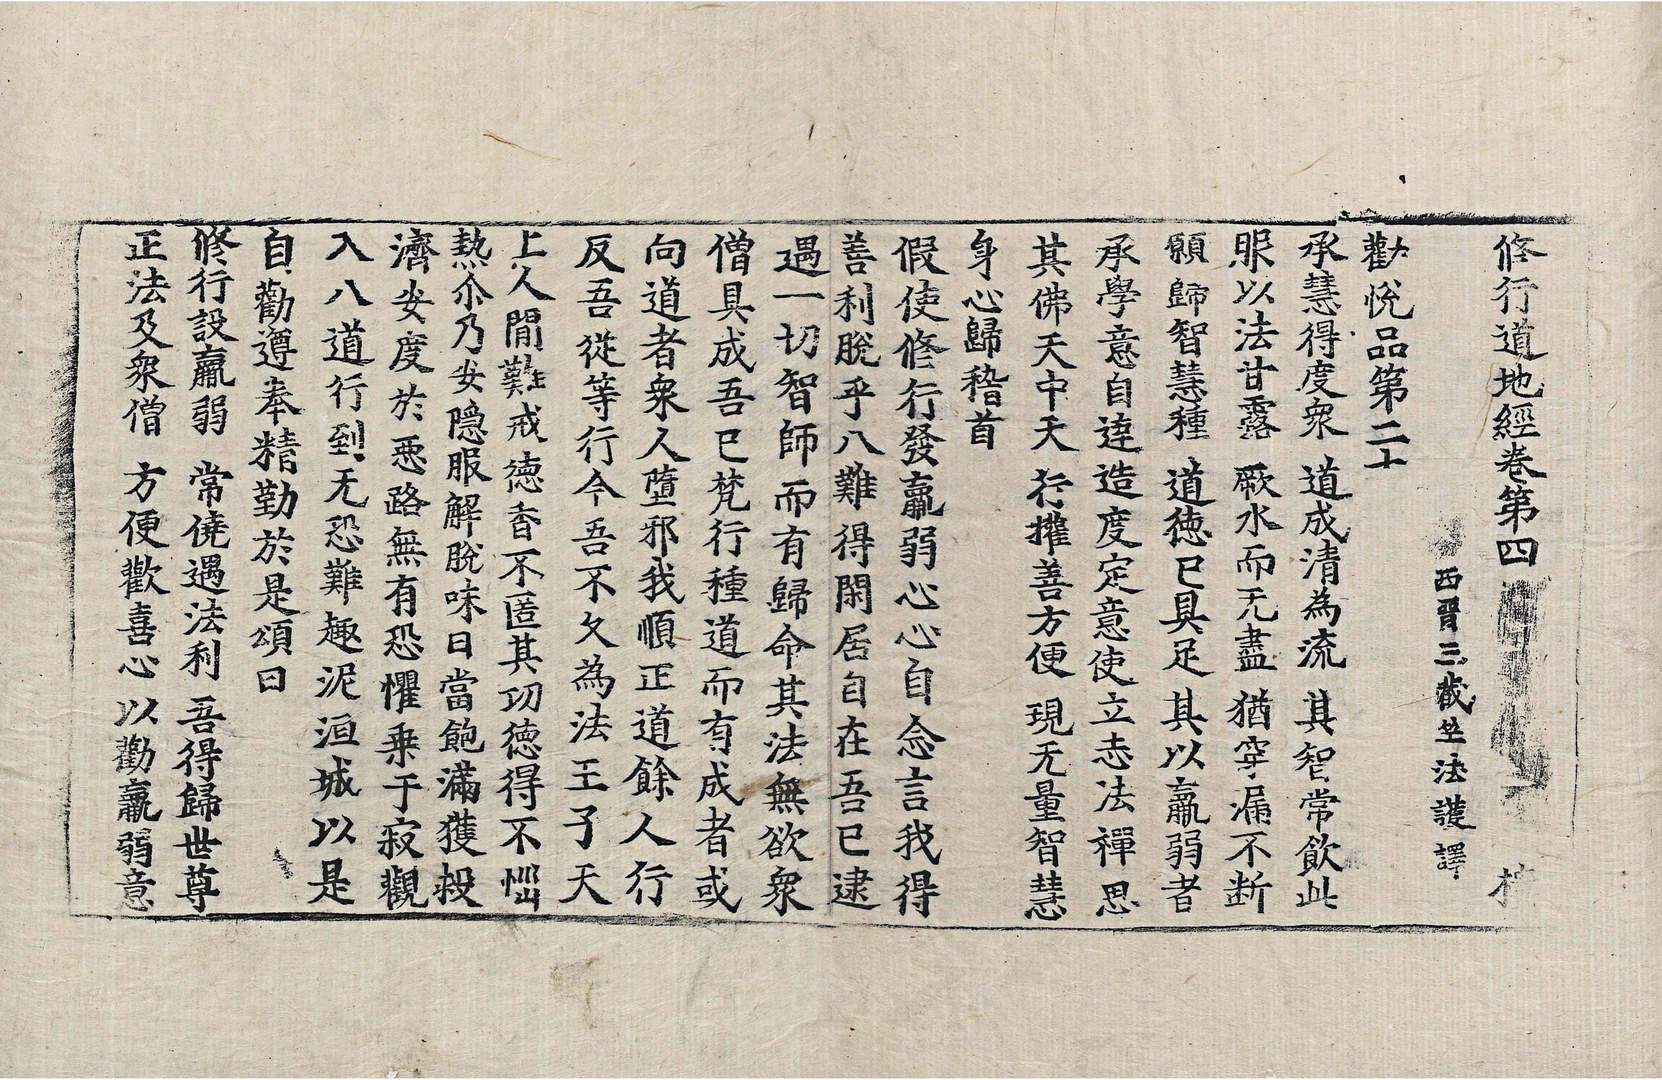 修行道地經卷第四
西晉三藏竺法護譯
勸悅品第二十
承慧得度衆 道成清為流 其智常飲此
服以法甘露 厥水而无盡 猶穿漏不断
願歸智慧種 道德已具足 其以羸弱者
承學意自達造度定意使立志法禪思
其佛天中天 行權善方便 現无量智慧
身心歸稽首
假使修行發羸弱心心自念言我得
善利脫乎八難得閑居自在吾已逮
遇一切智師而有歸命其法無欲衆
僧具成吾已梵行種道而有成者或
向道者衆人墮邪我順正道餘人行
反吾從等行今吾不久為法王子天
上人間難戒德香不匿其功德得不惱
熱尒乃安隱服解脫味日當飽滿獲救
濟安度於惡路無有恐懼乗于寂觀
入八道行到无恐難趣泥洹城以是
自勸遵奉精勤於是頌曰
修行設羸弱 常僥遇法利 吾得歸世尊
正法及衆僧 方便歡喜心 以勸羸弱意